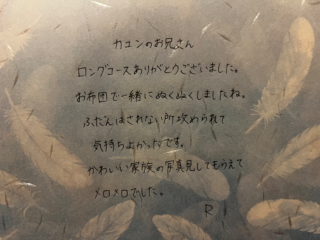 カユンのお兄さん
ロングコースありがとうございました。
お布団で一緒にぬくぬくしましたね。
ふだんはされない所攻められて
気持ちよかったです。
かわいい家族の写真見してもらえて
メロメロでした。
R